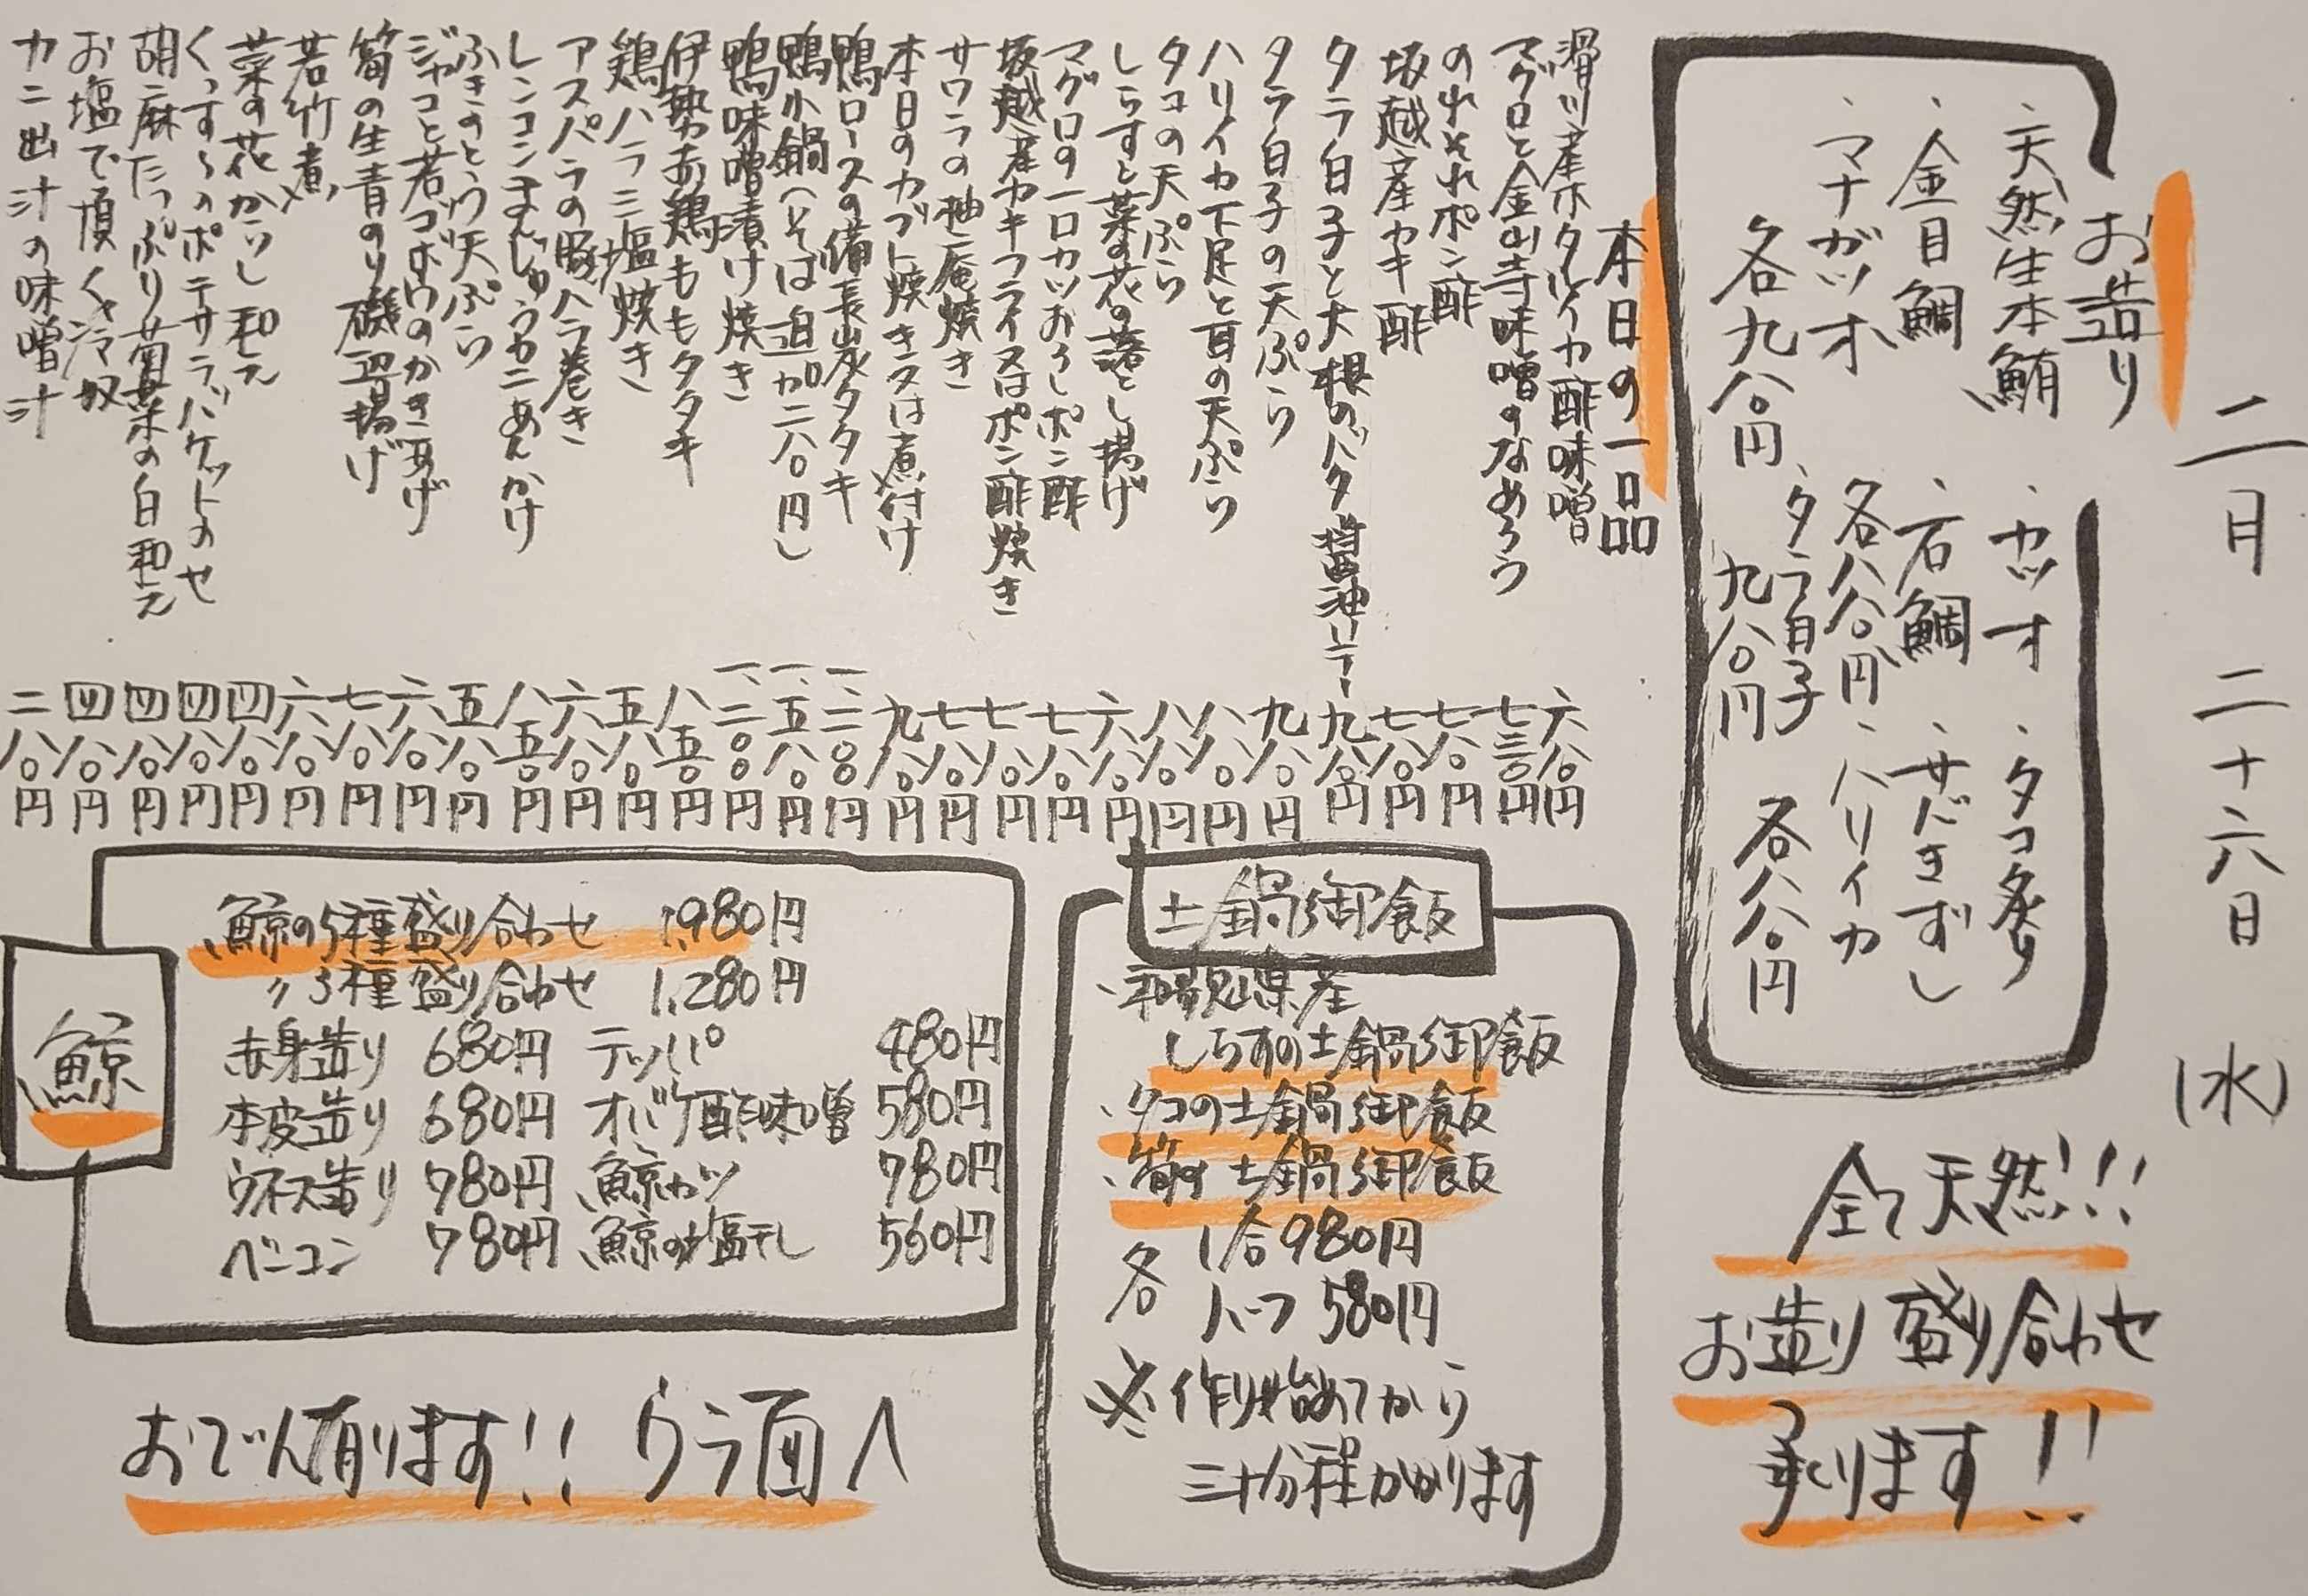 二月 二十六日 (水)
お造り
・天然生本鮪
・金目鯛
・マナガツオ
各九八〇円
・カツオ ・タコ炙り
・石鯛 ・サバきずし
各八八〇円 ・ハリイカ
・タラ白子 各八八〇円
九八〇円
全て天然!!!
お造り盛り合わせ
承ります!!
本日の一品
滑川産ホタルイカ酢味噌 六八〇円
マグロと金山寺味噌のなめろう 七三〇円
のれそれポン酢 七八〇円
坂越産カキ酢 七八〇円
タラ白子と大根のバタ醤油ソテー 九八〇円
タラ白子の天ぷら 九八〇円
ハリイカ下足と耳の天ぷら 八八〇円
タコの天ぷら 八八〇円
しらすと菜の花の落とし揚げ 六八〇円
マグロの一口カツおろしポン酢 七八〇円
坂越産カキフライ又はポン酢焼き 七八〇円
サワラの柚庵焼き 七八〇円
本日のカブト焼き又は煮付け 九八〇円
鴨ロースの備長炭タタキ 一、二〇〇円
鴨小鍋(そば追加二八〇円) 一、五八〇円
鴨味噌漬け焼き 一、二〇〇円
伊勢赤鶏ももタタキ 八五〇円
鶏ハラミ塩焼き 五八〇円
アスパラの豚バラ巻き 六八〇円
レンコンまんじゅうカニあんかけ 八五〇円
ふきのとう天ぷら 五八〇円
ジャコと若ゴボウのかき揚げ 六八〇円
筍の生青のり磯辺揚げ 七八〇円
若竹煮 六八〇円
菜の花からし和え 四八〇円
くっすんのポテサラバケットのせ 四八〇円
胡麻たっぷり菊菜の白和え 四八〇円
お塩で頂く冷奴 四八〇円
カニ出汁の味噌汁 二八〇円
土鍋御飯
・和歌山県産
しらすの土鍋御飯
・タコの土鍋御飯
・筍の土鍋御飯
各 1合980円
ハーフ580円
※作り始めてから
三十分程かかります
鯨
鯨の5種盛り合わせ 1,980円
〃3種盛り合わせ 1,280円
赤身造り 680円 テッパ 480円
本皮造り 680円 オバケ酢味噌 580円
ウネス造り 780円 鯨カツ 780円
ベーコン 780円 鯨の塩干し 560円
おでん有ります!! ウラ面へ